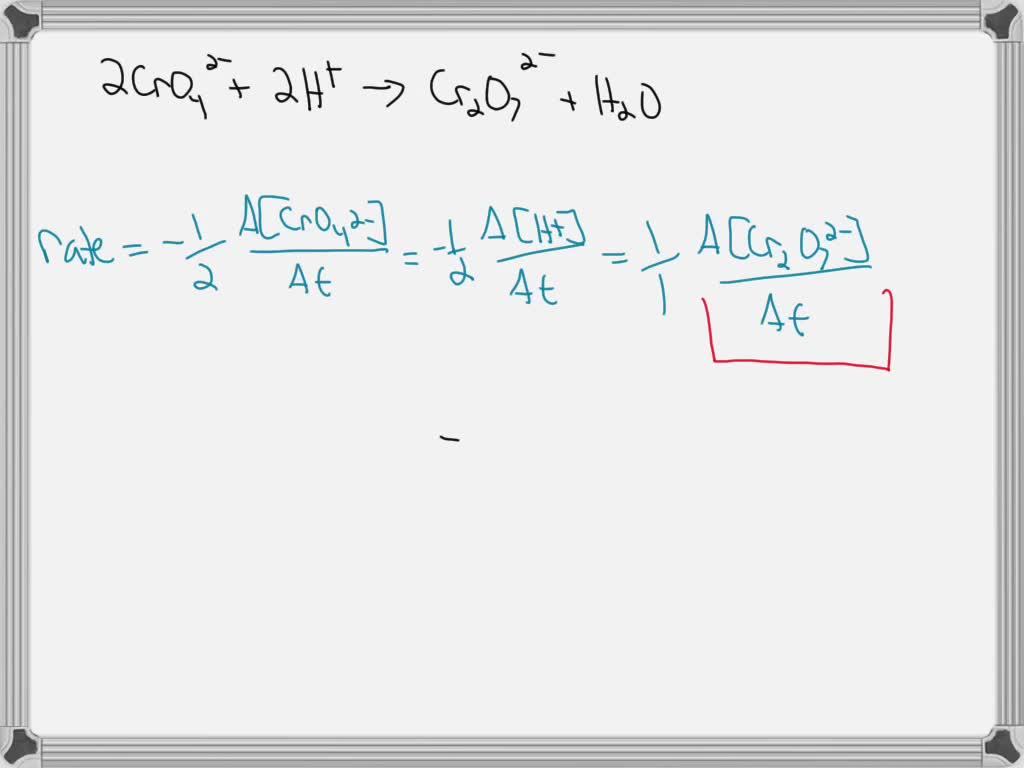 2CrO₄²⁻ + 2H⁺ → Cr₂O₇²⁻ + H₂O
rate = -1/2 Δ[CrO₄²⁻]/Δt = -1/2 Δ[H+]/Δt = 1/1 Δ[Cr₂O₇²⁻]/Δt
-